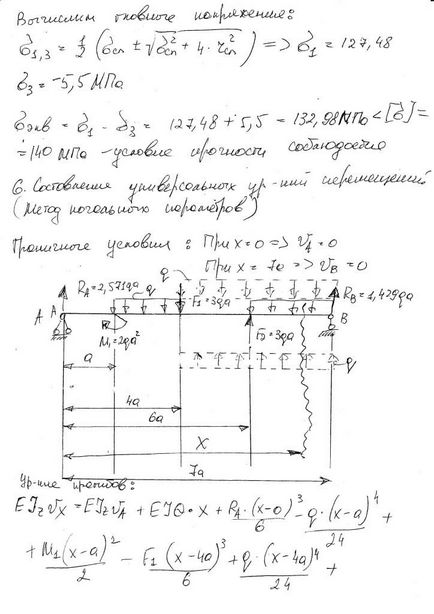 Вычислим главное напряжение:
σ₁,₃ = 1/2 (σсп ± √(σсп² + 4·τсп²)) => σ₁ = 127,48
σ₃ = -5,5 МПа
σэкв = σ₁ - σ₃ = 127,48 + 5,5 = 132,98 МПа < [σ] =
= 140 МПа - условие прочности соблюдается
6. Составление универсальных ур-ний перемещений
(Метод начальных параметров)
Граничные условия: При x=0 => v_A = 0
При x = 7a => v_B = 0
R_A = 2,571qa
q
q
F₁ = 3qa
R_B = 1,429qa
A A
M₁ = 2qa²
F₂ = 3qa
B
a
q
4a
6a
X
7a
Ур-ние прогибов:
EJz v_x = EJz v_A + EJΘ·x + R_A·(x-0)³/6 - q·(x-a)⁴/24 +
+ M₁(x-a)²/2 - F₁(x-4a)³/6 + q·(x-4a)⁴/24 +